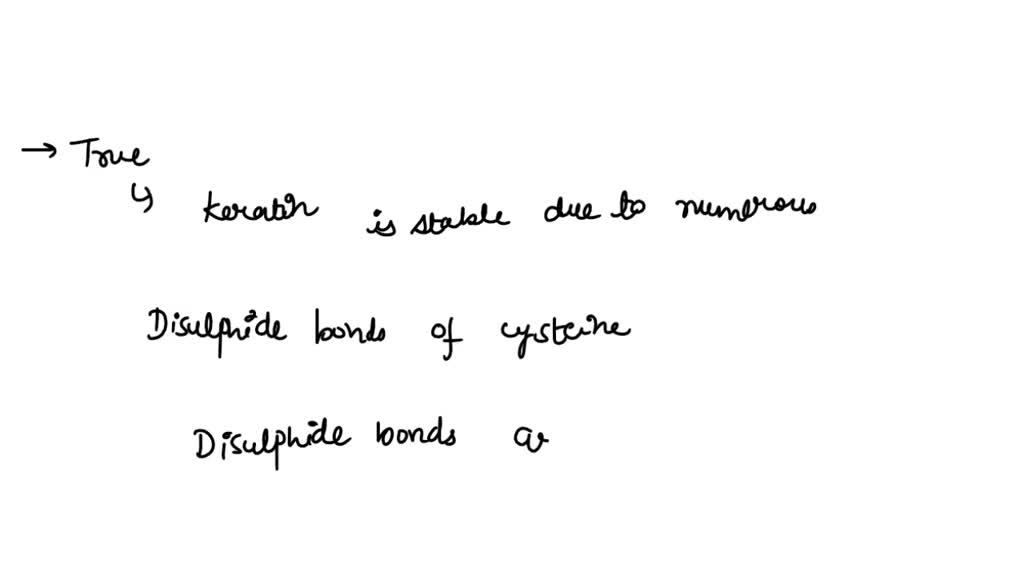 → True
↳ Keratin is stable due to numerous
Disulphide bonds of cysteine
Disulphide bonds ar